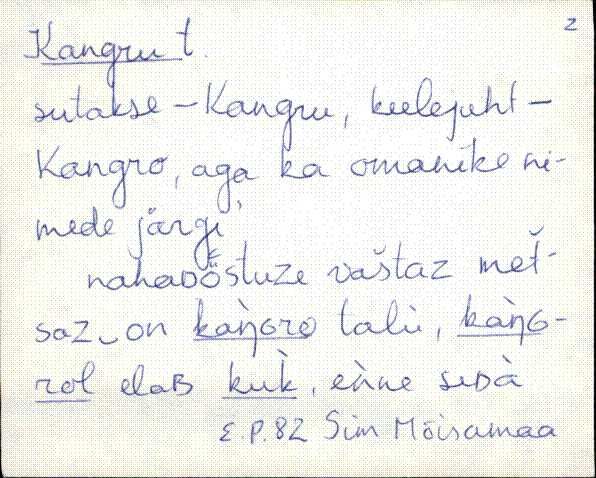 2
Kangru t.
sutakse – Kangru, keelejuht –
Kangro, aga ka omanike ni-
mede järgi
nahaᴅȭstuze vaštaz met̆-
saz‿on kàŋɢro talù, kàŋɢ-
rol elaʙ kuk̀, eǹne seᴅà
E.P. 82 Sim Mõisamaa